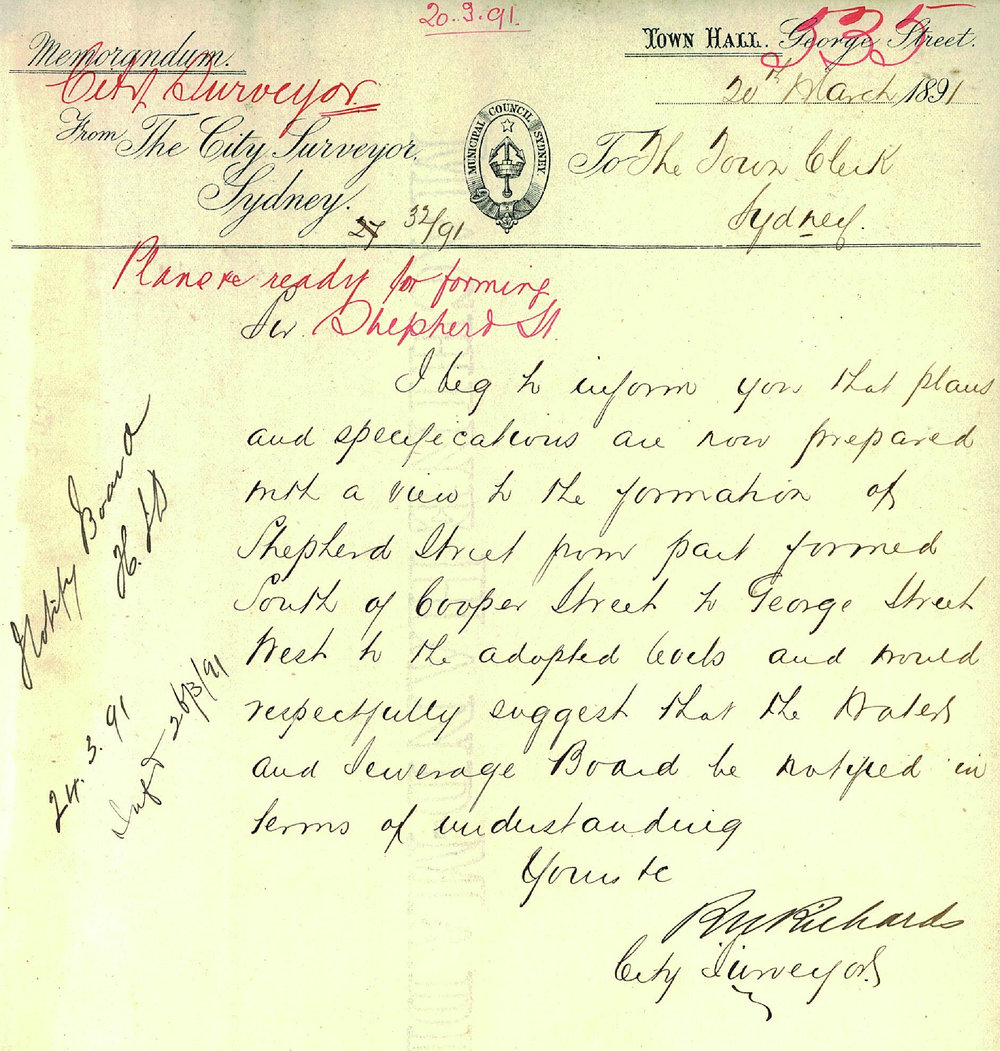 20.3.91.
535
Memorandum.
TOWN HALL. George Street.
City Surveyor.
20th March 1891
From The City Surveyor.
Sydney.
MUNICIPAL COUNCIL SYDNEY.
To The Town Clerk
Sydney.
27 32/91
Plans &c ready for forming
Shepherd St.
Sir.
I beg to inform you that plans
and specifications are now prepared
with a view to the formation of
Shepherd Street from part formed
South of Cooper Street to George Street
West to the adopted levels and would
respectfully suggest that the Water
and Sewerage Board be notified in
terms of understanding
Yours &c
Richards
City Surveyor
Notify Board
24.3.91
Infd 26/3/91